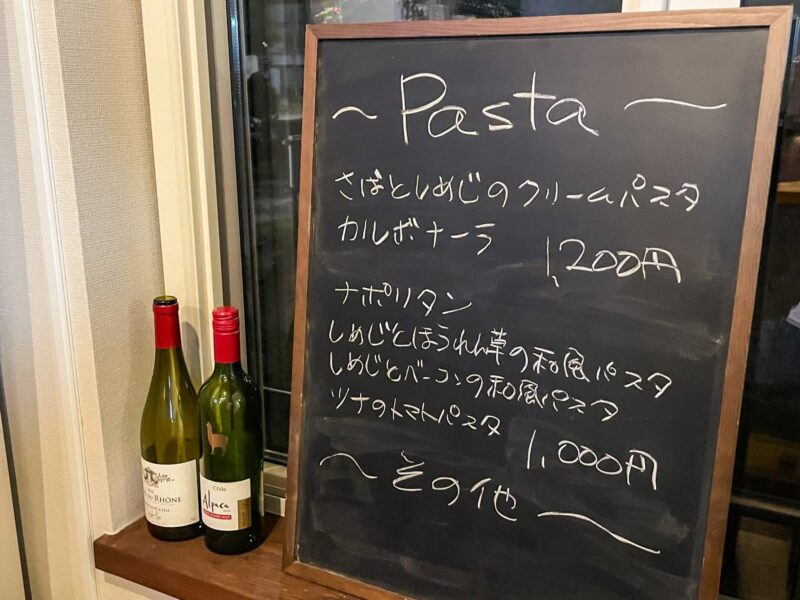 〜 Pasta 〜
さばとしめじのクリームパスタ
カルボナーラ
1,200円
ナポリタン
しめじとほうれん草の和風パスタ
しめじとベーコンの和風パスタ
ツナのトマトパスタ
1,000円
〜 その他 〜
RHÔNE
Chile
Alpaca